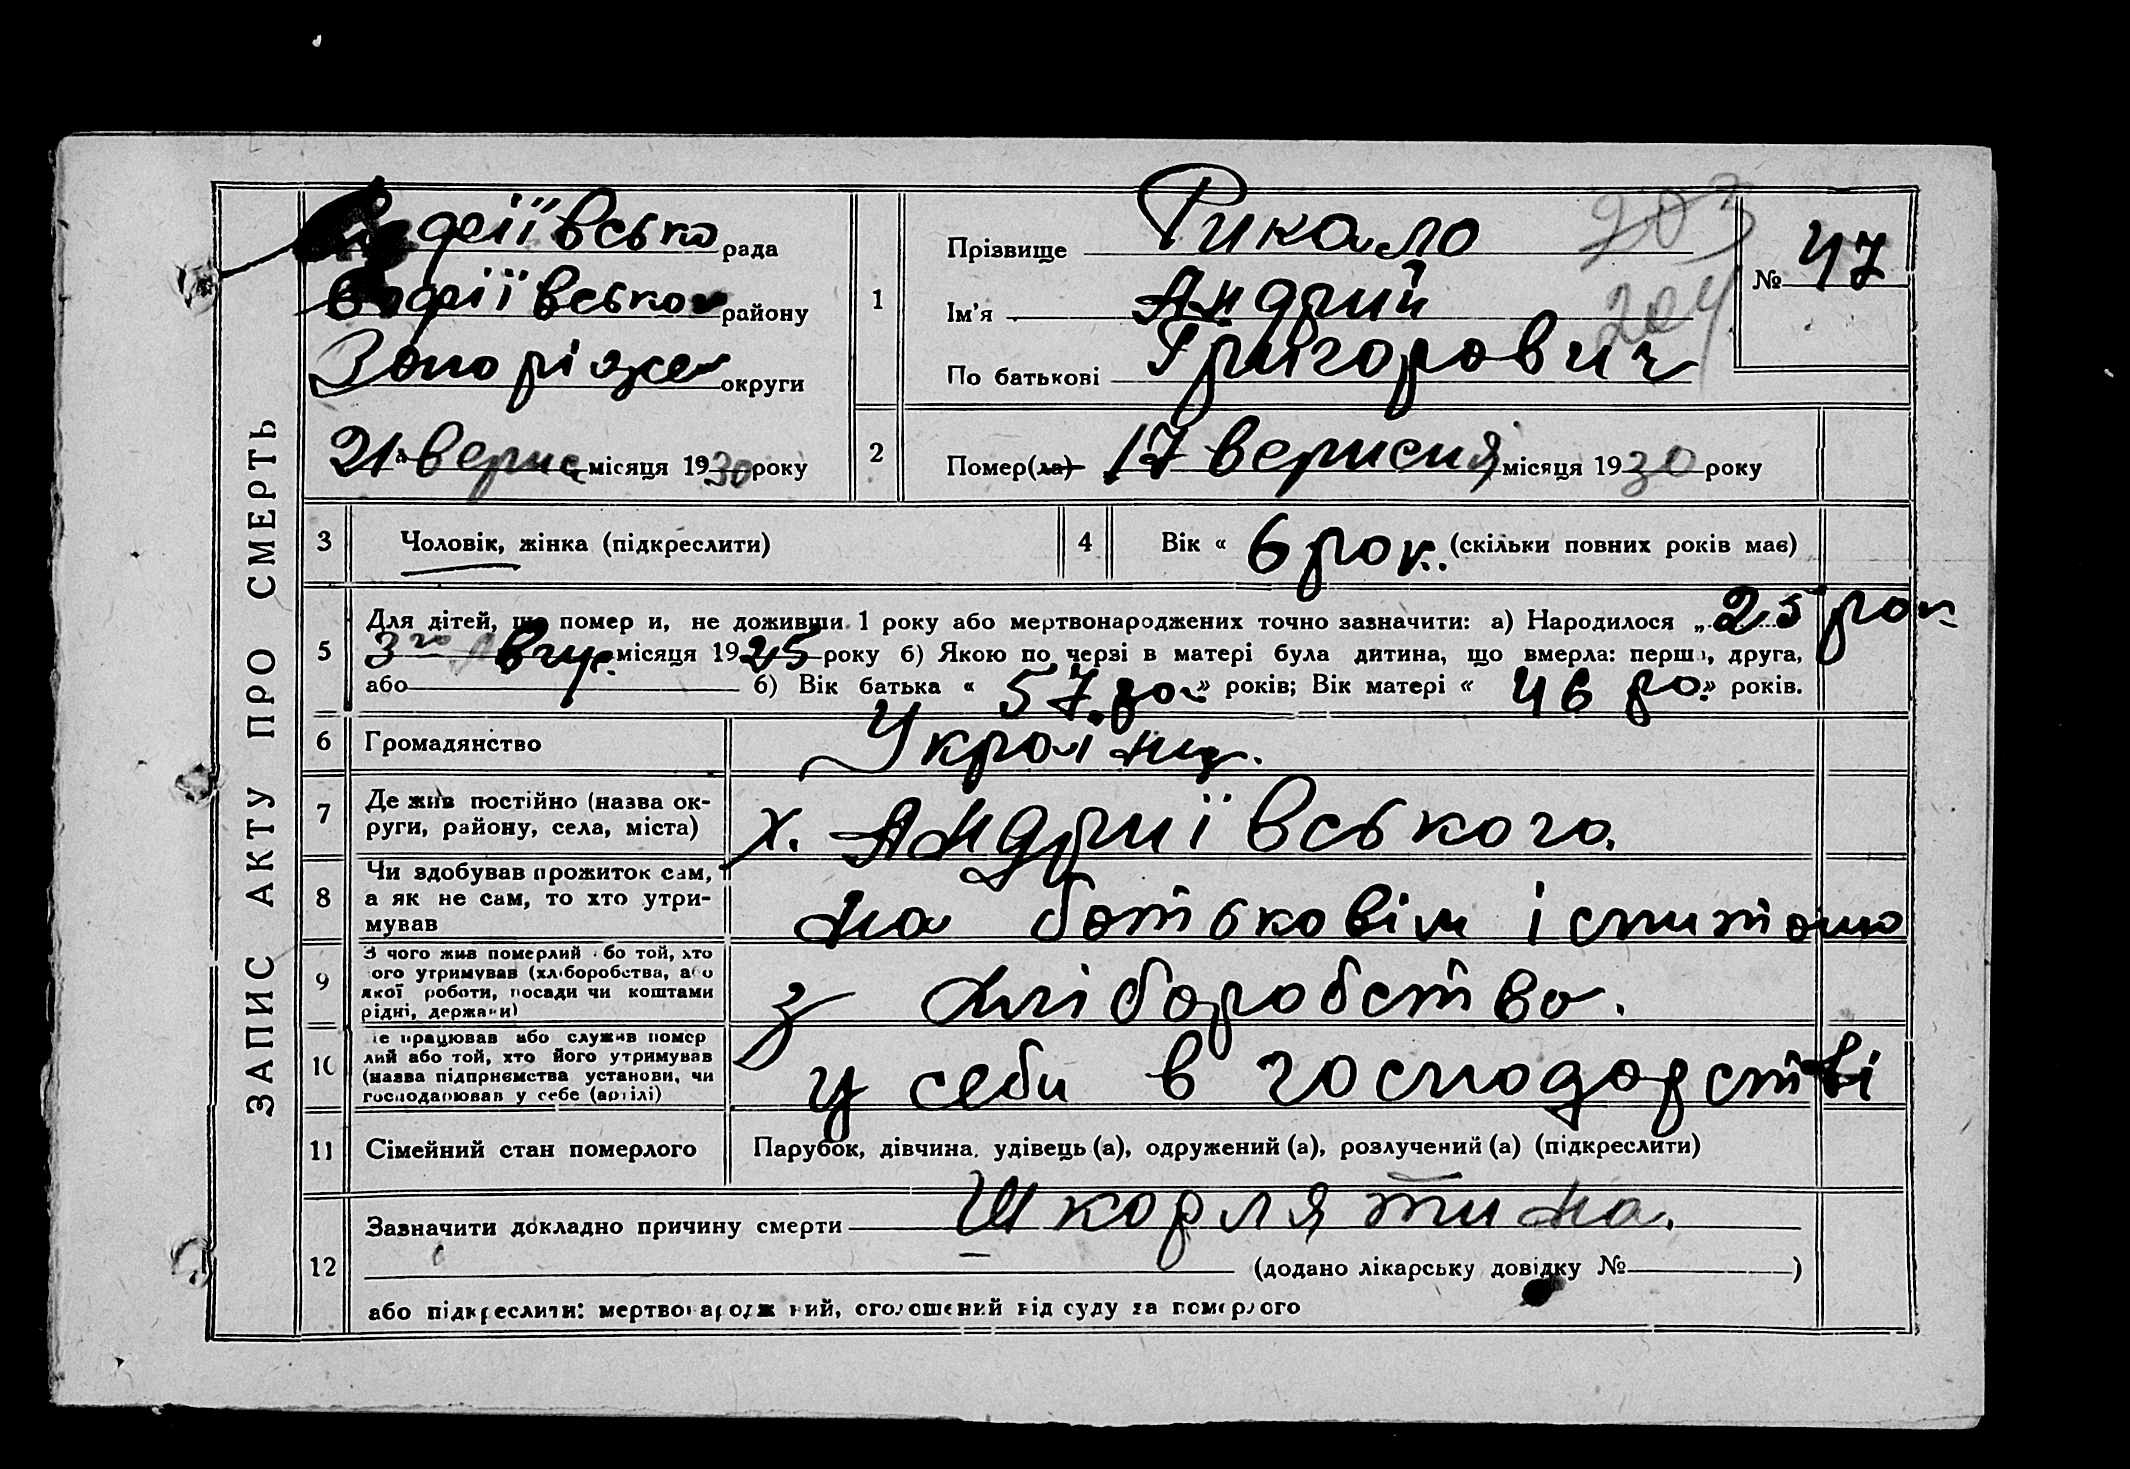 ЗАПИС АКТУ ПРО СМЕРТЬ
Софіївсько рада
Софіївсько району
Запоріжс округи
21 верпс місяця 1930 року
1
Прізвище Рикало
Ім'я Андрий
По батькові Григорович
203
204
№ 47
2
Помер(ла) 17 верисня місяця 1930 року
3 Чоловік, жінка (підкреслити)
4 Вік « 6 рок. (скільки повних років має)
5 Для дітей, що помер и, не доживши 1 року або мертвонароджених точно зазначити: а) Народилося „ 25 рок
3го Авгус. місяця 1925 року б) Якою по черзі в матері була дитина, що вмерла: перша, друга,
або б) Вік батька « 57 ро » років; Вік матері « 46 ро. » років.
6 Громадянство Україн.
7 Де жив постійно (назва ок-
руги, району, села, міста) х. Андриївського.
8 Чи здобував прожиток сам,
а як не сам, то хто утри-
мував На батьковім
9 З чого жив померлий або той, хто
ого утримував (хліборобства, або
якої роботи, посади чи коштами
рідні, держави) з хліборобство.
10 е працював або служив помер
лий або той, хто його утримував
(назва підприємства установи, чи
господарював у себе (артілі) у себи в господарстві
11 Сімейний стан померлого Парубок, дівчина, удівець (а), одружений (а), розлучений (а) (підкреслити)
12 Зазначити докладно причину смерти Шкорлятина.
(додано лікарську довідку № )
або підкреслити: мертвонароджений, оголошений від суду за померлого